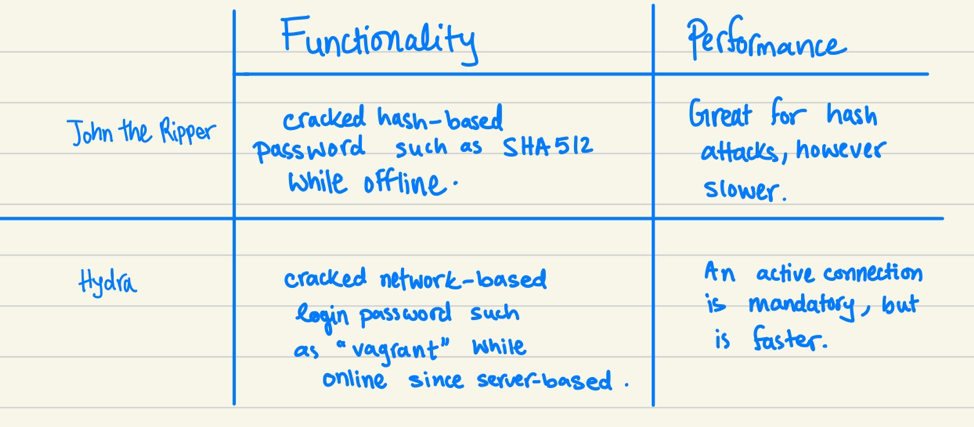 Functionality
Performance
John the Ripper
cracked hash-based
password such as SHA512
while offline.
Great for hash
attacks, however
slower.
Hydra
cracked network-based
login password such
as "vagrant" while
online since server-based.
An active connection
is mandatory, but
is faster.